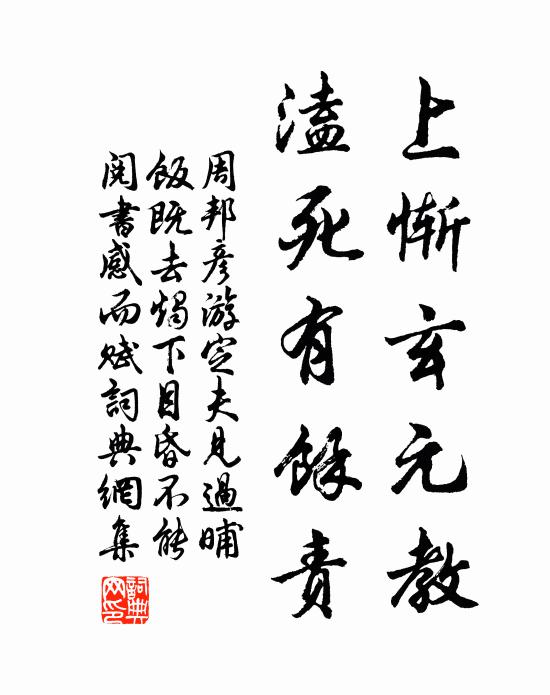 上慚玄元教
溘死有餘責
周邦彥游定夫見過晡
飯既去燭下目昏不能
閱書感而賦詞典網集
詞典網印